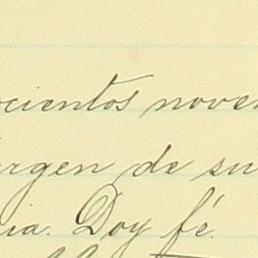 ocientos nove
rgen de su
ia. Doy fé.